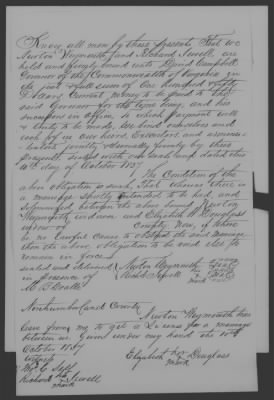 Know all men by these presents That we
Newton Weymouth and Richard Sewell, are
held and firmly bound unto David Campbell
Governor of the Commonwealth of Virginia in
the just & full sum of One hundred & fifty
Dollars, Current money to be paid to the
said Governor for the time being, and his
successors in office, to which payment well
& truly to be made, we bind ourselves and
each of us our heirs, Executors and adminis-
trators jointly & severally firmly by these
presents, sealed with our seals and dated this
10th day of October 1837
The Condition of the
above obligation is such, That whereas there is
a marriage shortly intended to be had, and
solemnized between the above bound Newton
Weymouth widower and Elizabeth Douglass
widow of County Now, if there
be no lawful cause to obstruct the said marriage
then the above obligation to be void else to
remain in force
sealed and delivered
in presence of
Newton Weymouth seal
Richard Sewell
his
mark
Northumberland County
Newton Weymouth has
leave from me to get a License for a marriage
between us. Given under my hand the 10th
October 1837
Elizabeth her Douglass
mark
Richard his Sewell
mark